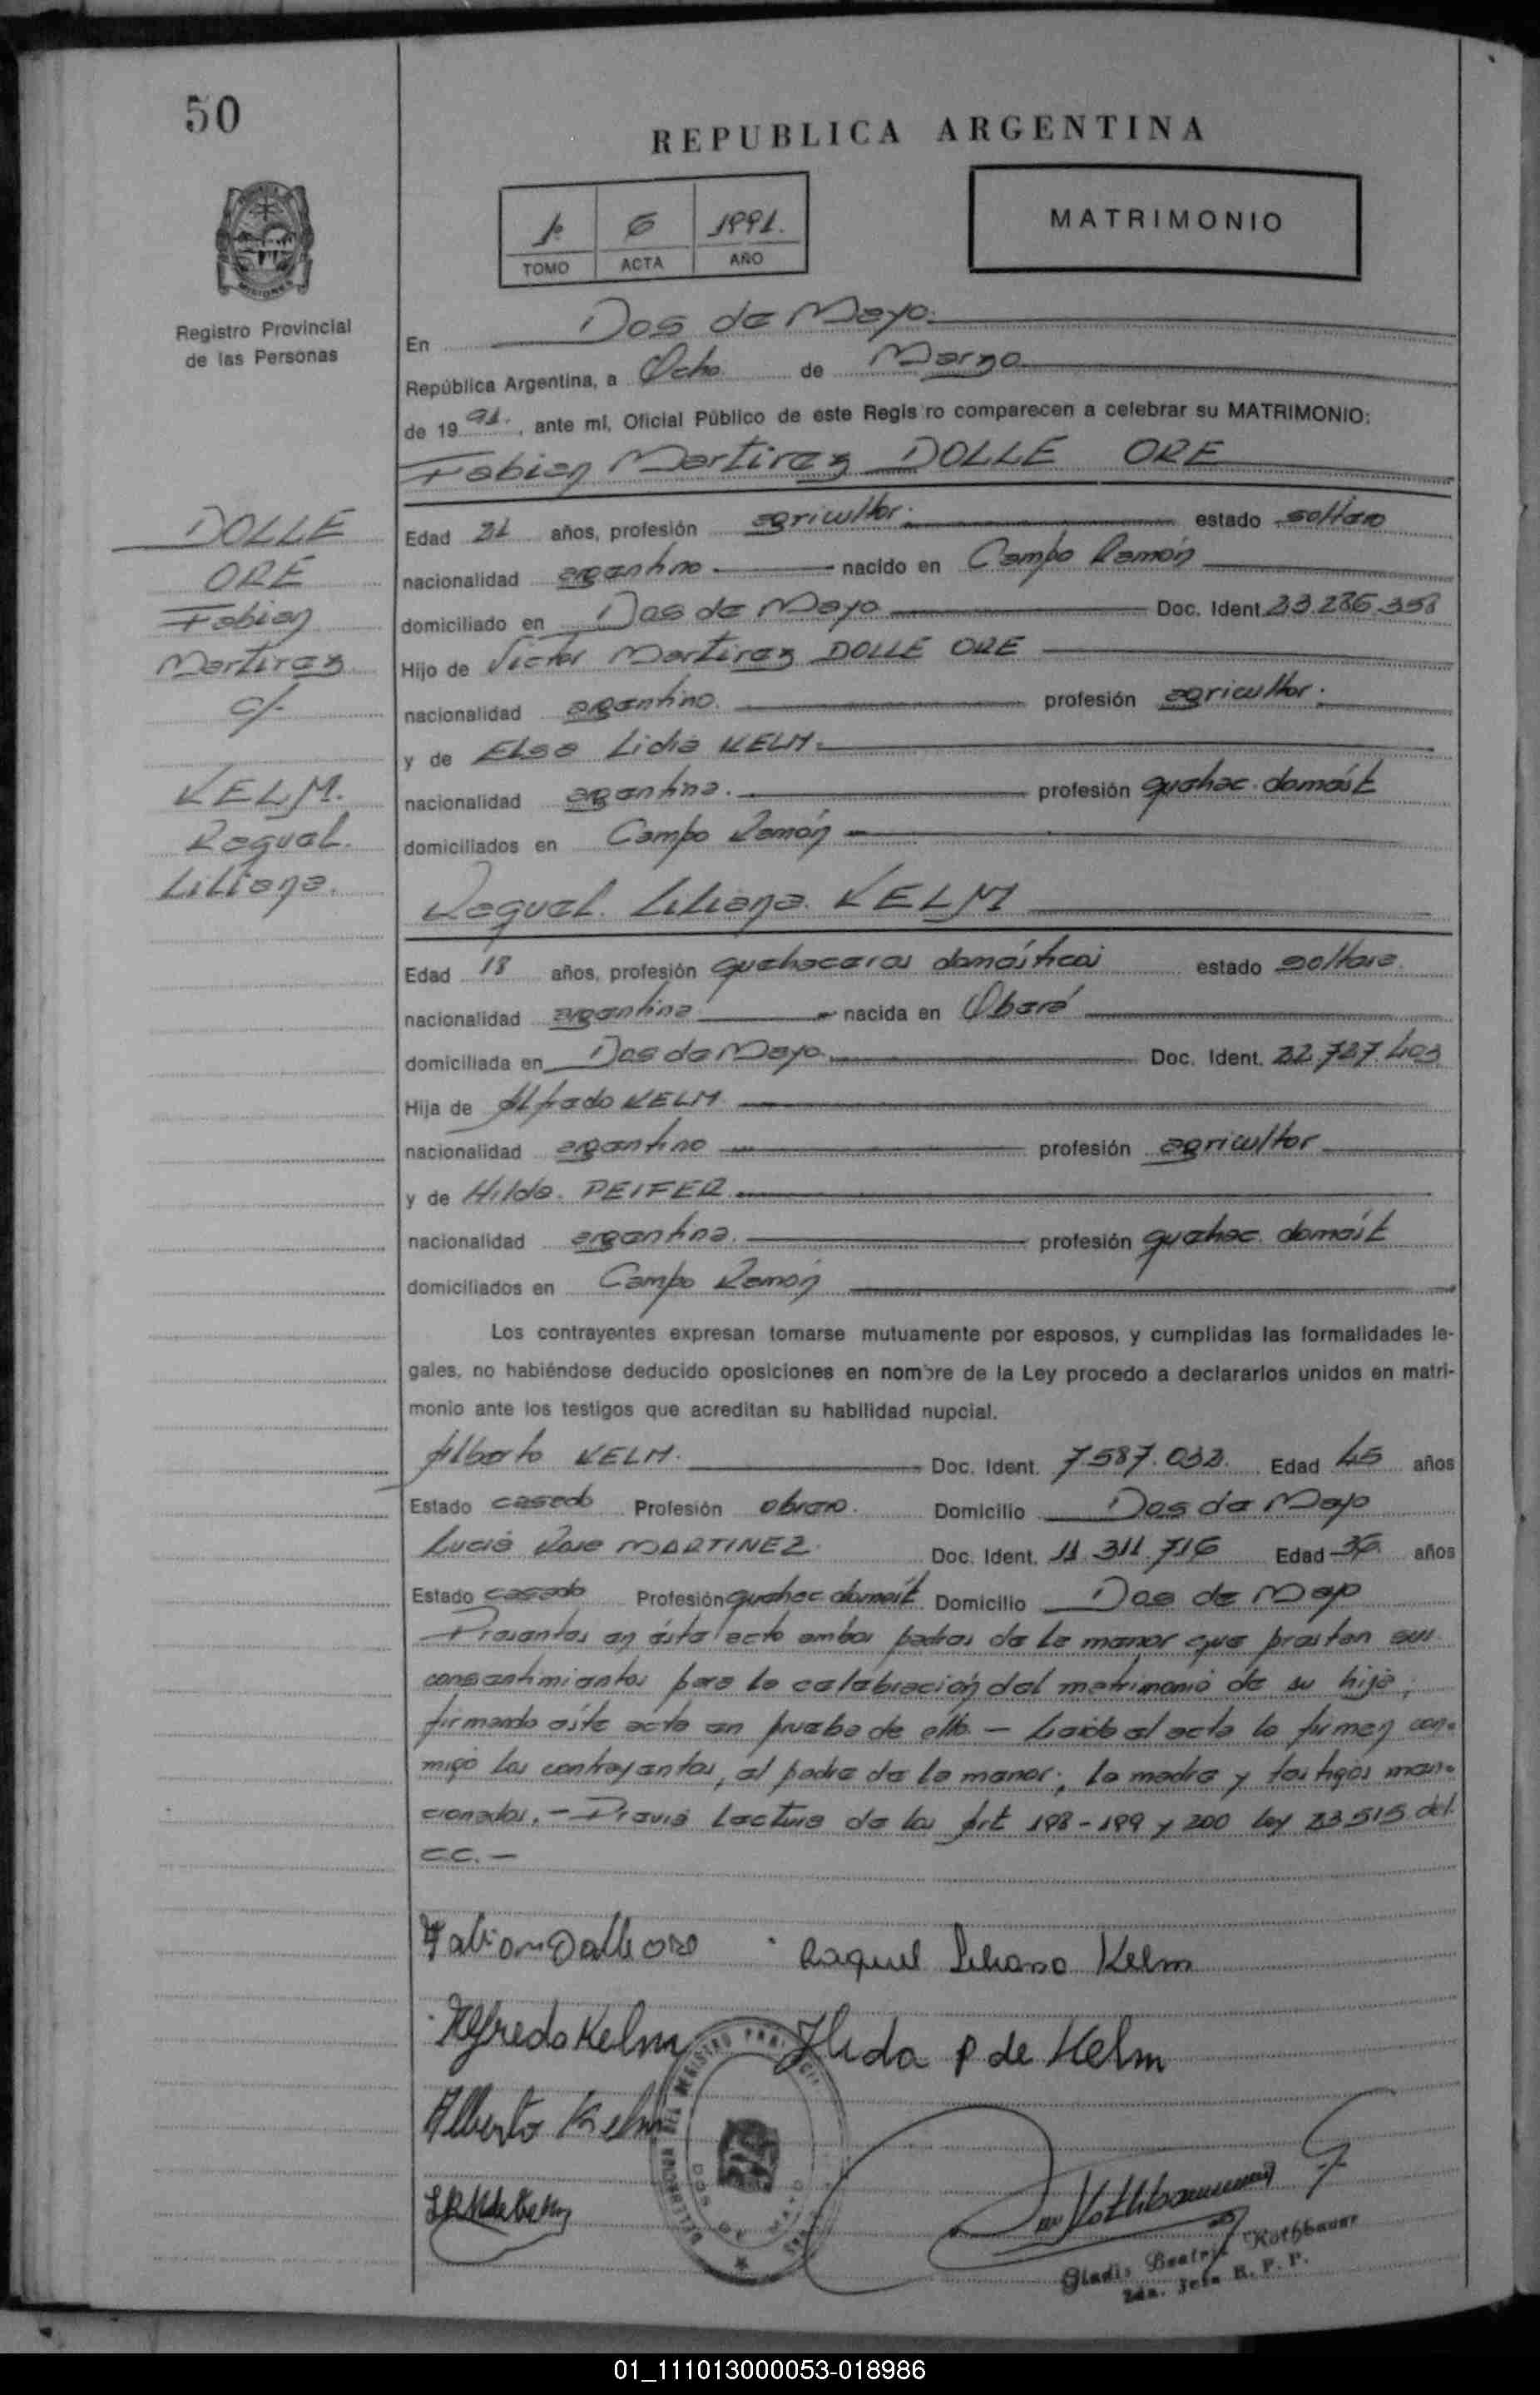 50
REPUBLICA ARGENTINA
1º 6 1991.
TOMO ACTA AÑO
MATRIMONIO
MISIONES
Registro Provincial
de las Personas
En Dos de Mayo.
República Argentina, a Ocho de Marzo
de 19 91., ante mí, Oficial Público de este Registro comparecen a celebrar su MATRIMONIO:
Fabian Martirez DOLLE ORE
DOLLE
ORE
Fabian
Martirez
c/.
KELM.
Raquel.
Liliana.
Edad 21 años, profesión agricultor. estado soltero
nacionalidad argentino nacido en Campo Ramón
domiciliado en Dos de Mayo Doc. Ident. 23.286.358
Hijo de Victor Martirez DOLLE ORE
nacionalidad argentino. profesión agricultor.
y de Elsa Lidia KELM.
nacionalidad argentina. profesión quehac. domést
domiciliados en Campo Ramón
Raquel. Liliana. KELM
Edad 18 años, profesión quehaceres domésticos estado soltera
nacionalidad argentina nacida en Oberá
domiciliada en Dos de Mayo. Doc. Ident. 22.727.403
Hija de Alfredo KELM
nacionalidad argentino profesión agricultor
y de Hilda. PEIFER
nacionalidad argentina. profesión quehac. domést
domiciliados en Campo Ramón
Los contrayentes expresan tomarse mutuamente por esposos, y cumplidas las formalidades le-
gales, no habiéndose deducido oposiciones en nombre de la Ley procedo a declararlos unidos en matri-
monio ante los testigos que acreditan su habilidad nupcial.
Alberto KELM. Doc. Ident. 7.587.032. Edad 45 años
Estado casado Profesión obrero. Domicilio Dos de Mayo
Lucia Rosa MARTINEZ Doc. Ident. 11.311.716 Edad 36 años
Estado casada Profesión quehac domést Domicilio Dos de Mayo
Presentes en éste acto ambos padres de la menor que prestan sus
consentimientos para la celebración del matrimonio de su hija,
firmando éste acta en prueba de ello. — Leida el acta la firman con-
migo los contrayentes, el padre de la menor; la madre y testigos men-
cionados. — Previa lectura de los Art 198 - 199 y 200 ley 23.515 del
C.C. —
Fabian Dolle ore Raquel Liliana Kelm
Alfredo Kelm Hilda P de Kelm
Alberto Kelm
Gladis Beatriz Rothbauer
2da. Jefa R. P. P.
01_111013000053-018986